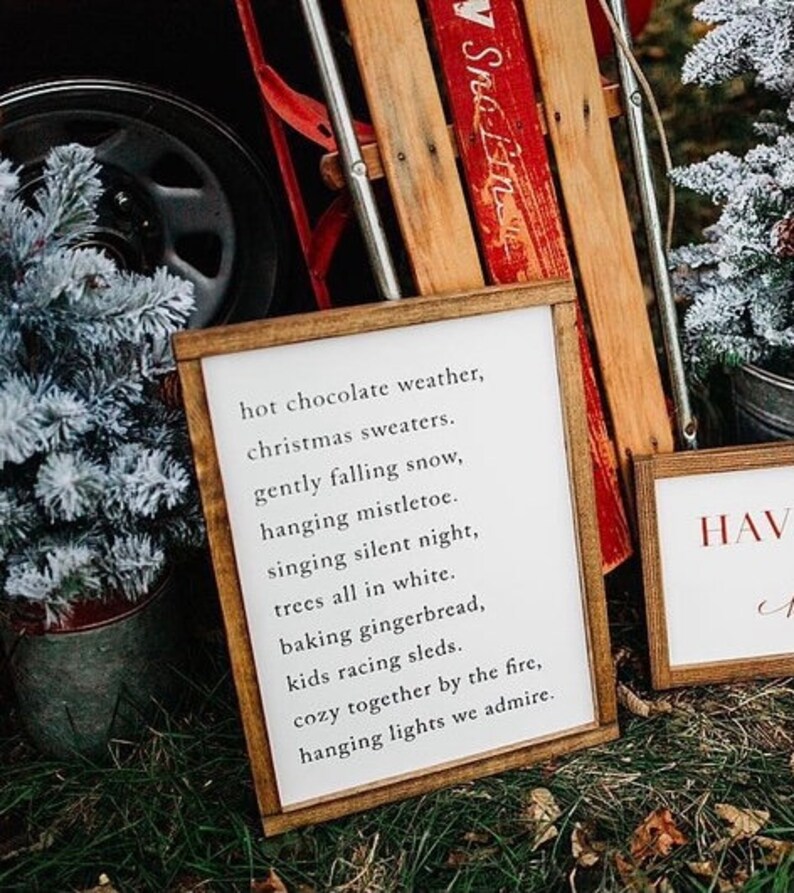 hot chocolate weather,
christmas sweaters.
gently falling snow,
hanging mistletoe.
singing silent night,
trees all in white.
baking gingerbread,
kids racing sleds.
cozy together by the fire,
hanging lights we admire.
HAV